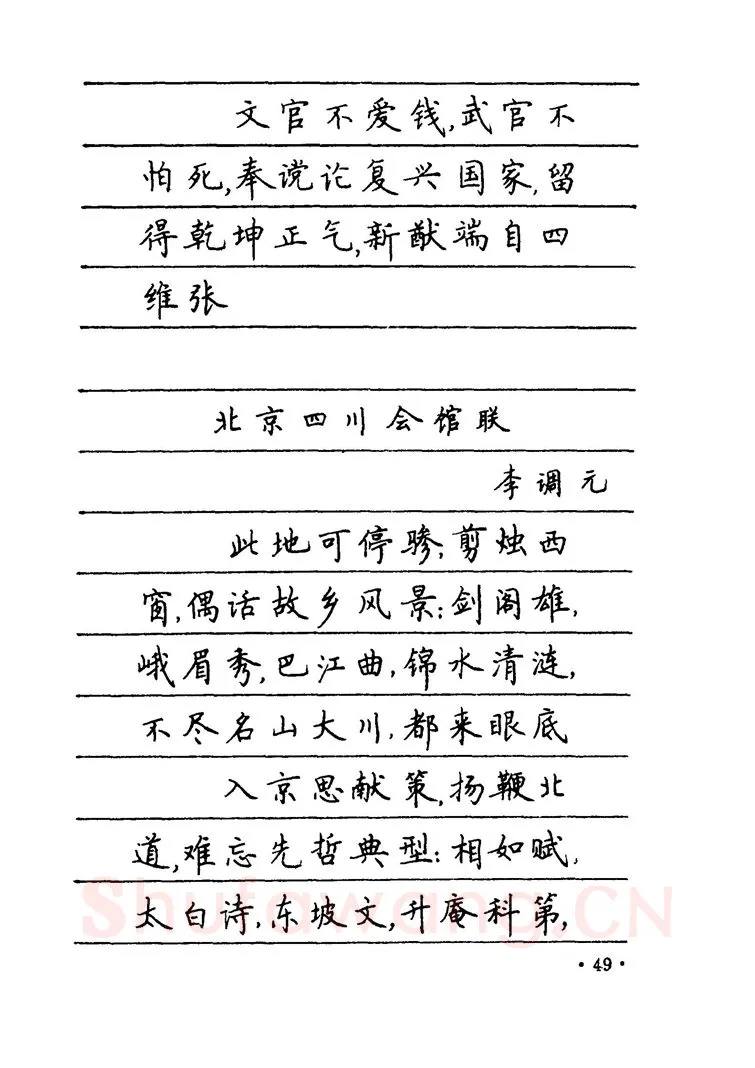 文官不爱钱,武官不
怕死,奉谠论复兴国家,留
得乾坤正气,新猷端自四
维张
北京四川会馆联
李调元
此地可停骖;剪烛西
窗,偶话故乡风景:剑阁雄,
峨眉秀,巴江曲,锦水清涟,
不尽名山大川,都来眼底
入京思献策,扬鞭北
道,难忘先哲典型:相如赋,
太白诗,东坡文,升庵科第,
Shufawang.CN
·49·